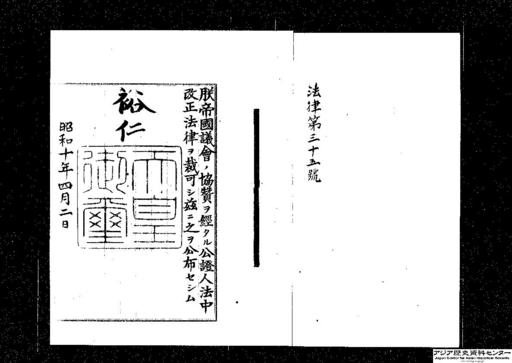 法律第三十五號
朕帝國議會ノ協贊ヲ經タル公證人法中
改正法律ヲ裁可シ茲ニ之ヲ公布セシム
裕仁
天皇御璽
昭和十年四月二日
アジア歴史資料センター
Japan Center for Asian Historical Records